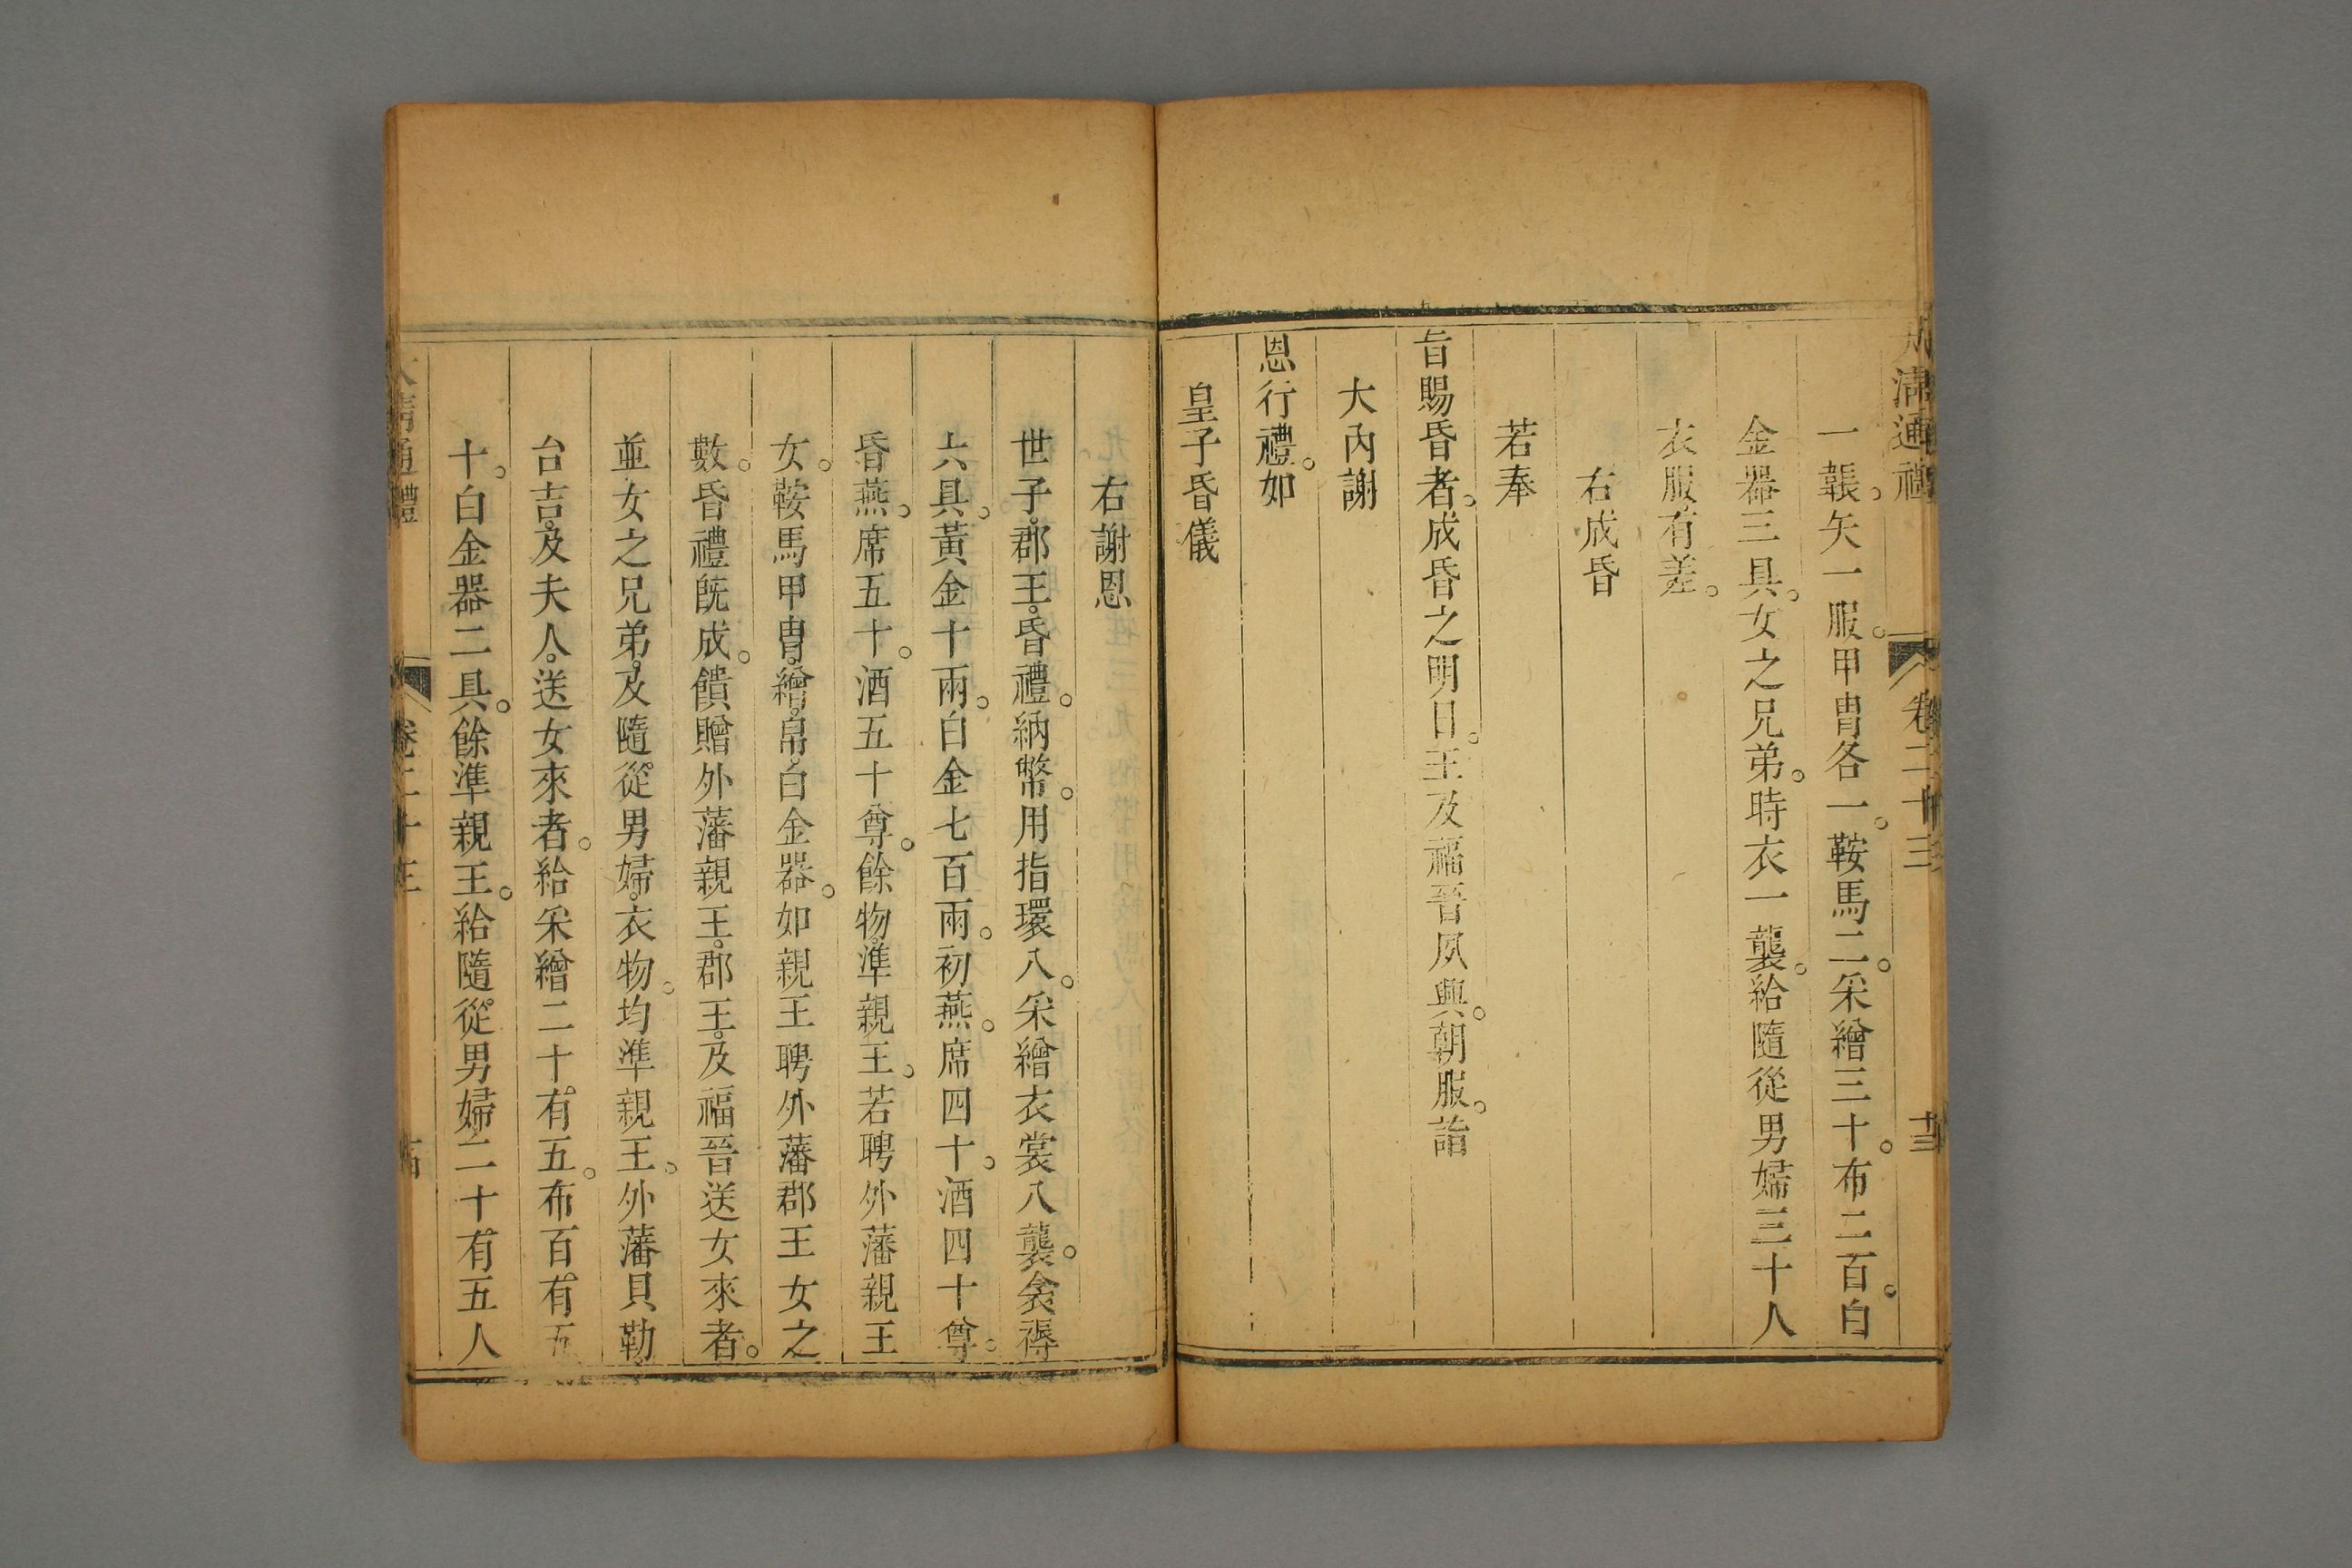 大清通禮 卷二十三 十三
一韔。矢一服。甲冑各一。鞍馬二。采繒三十。布二百。白
金器三具。女之兄弟。時衣一襲。給隨從男婦三十人
衣服有差。
右成昏
若奉
旨賜昏者。成昏之明日。王及福晉夙興。朝服。詣
大內謝
恩行禮。如
皇子昏儀
右謝恩
世子。郡王。昏禮。納幣。用指環八。采繒衣裳八襲。衾褥
六具。黃金十兩。白金七百兩。初燕。席四十。酒四十尊。
昏燕。席五十。酒五十尊。餘物。準親王。若聘外藩親王
女。鞍馬甲冑。繒。帛。白金器。如親王聘外藩郡王女之
數。昏禮旣成。饋贈外藩親王。郡王。及福晉送女來者。
並女之兄弟。及隨從男婦。衣物。均準親王。外藩貝勒。
台吉。及夫人。送女來者。給采繒二十有五。布百有五
十。白金器二具。餘準親王。給隨從男婦二十有五人
大清通禮 卷二十三 十四